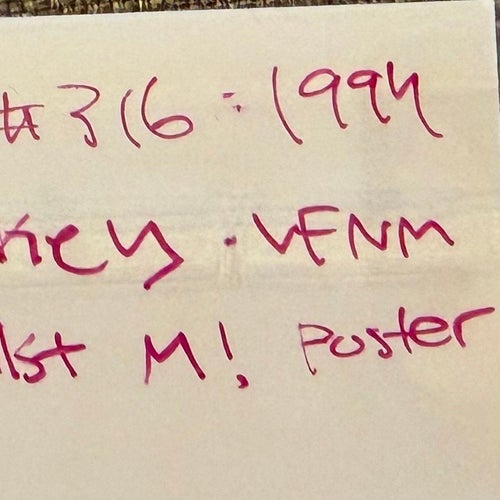 #316 : 1994
Key . VENM
1st M! Poster